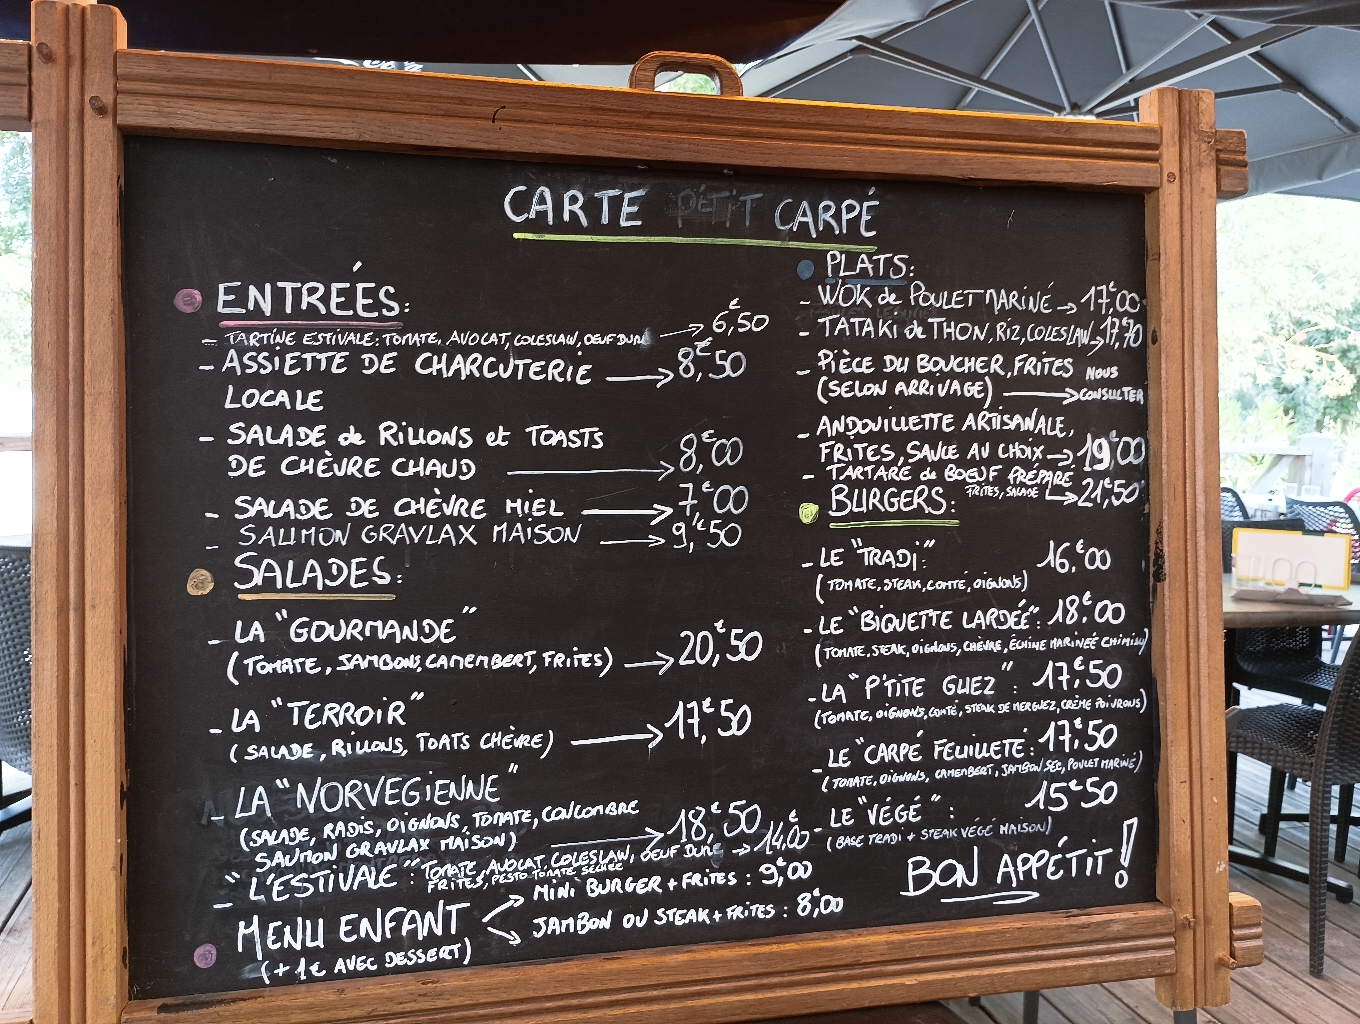 CARTE P'TIT CARPÉ
ENTRÉES:
- TARTINE ESTIVALE: TOMATE, AVOCAT, COLESLAW, OEUF DUR → 6,€50
- ASSIETTE DE CHARCUTERIE → 8,€50
LOCALE
- SALADE de RILLONS et TOASTS
DE CHÈVRE CHAUD → 8,€00
- SALADE DE CHÈVRE MIEL → 7,€00
- SAUMON GRAVLAX MAISON → 9,€50
SALADES:
- LA "GOURMANDE"
(TOMATE, JAMBONS, CAMEMBERT, FRITES) → 20,€50
- LA "TERROIR"
(SALADE, RILLONS, TOATS CHÈVRE) → 17,€50
LA "NORVEGIENNE"
(SALADE, RADIS, OIGNONS, TOMATE, CONCOMBRE
SAUMON GRAVLAX MAISON) → 18,€50
- L'ESTIVALE": TOMATE, AVOCAT, COLESLAW, OEUF DUR → 14,€00
FRITES, PESTO TOMATE SÉCHÉE
MENU ENFANT
MINI BURGER + FRITES : 9,€00
JAMBON OU STEAK + FRITES : 8,€00
(+ 1€ AVEC DESSERT)
PLATS:
- WOK de POULET MARINÉ → 17,€00
- TATAKI de THON, RIZ, COLESLAW → 17,€70
- PIÈCE DU BOUCHER, FRITES NOUS
(SELON ARRIVAGE) → CONSULTER
- ANDOUILLETTE ARTISANALE,
FRITES, SAUCE AU CHOIX → 19,€00
- TARTARE de BOEUF PRÉPARÉ
FRITES, SALADE → 21,€50
BURGERS:
- LE "TRADI": 16,€00
(TOMATE, STEAK, COMTÉ, OIGNONS)
- LE "BIQUETTE LARDÉE": 18,€00
(TOMATE, STEAK, OIGNONS, CHÈVRE, ÉCHINE MARINEÉ
- LA "P'TITE GUEZ" : 17,€50
(TOMATE, OIGNONS, COMTÉ, STEAK DE MERGUEZ, CRÈME POIVRONS)
- LE "CARPÉ FEUILLETÉ: 17,€50
(TOMATE, OIGNONS, CAMEMBERT, JAMBON SEC, POULET MARINÉ)
- LE "VÉGÉ" : 15€50
(BASE TRADI + STEAK VÉGÉ MAISON)
BON APPÉTIT!